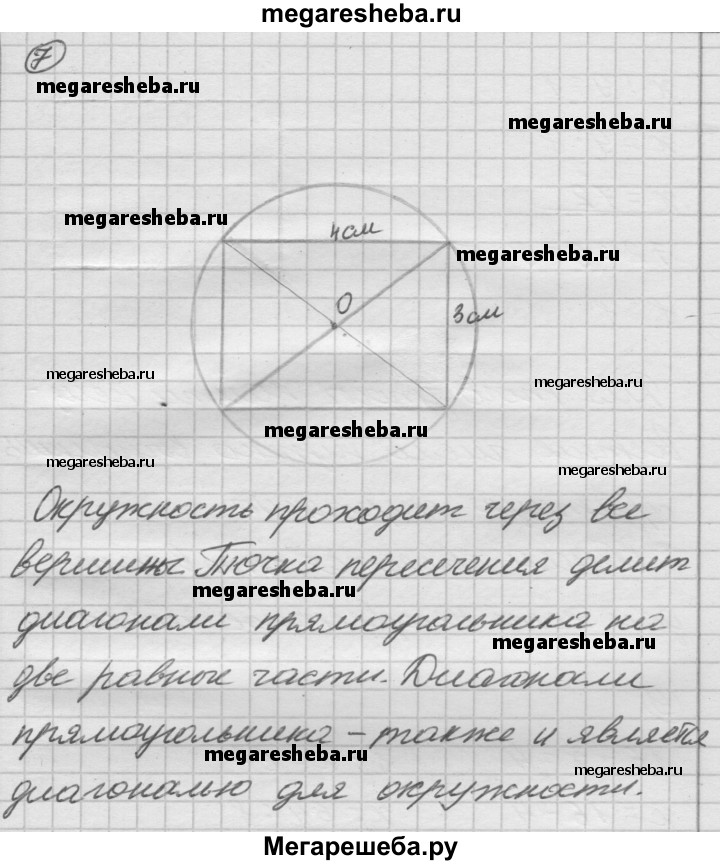 megaresheba.ru
7
megaresheba.ru
megaresheba.ru
megaresheba.ru
4см
megaresheba.ru
О
3см
megaresheba.ru
megaresheba.ru
megaresheba.ru
megaresheba.ru
megaresheba.ru
Окружность проходит через все
вершины. Точка пересечения делит
megaresheba.ru
диагонали прямоугольника на
megaresheba.ru
две равные части. Диагонали
прямоугольника – также и является
megaresheba.ru
megaresheba.ru
диагональю для окружности.
Мегарешеба.ру